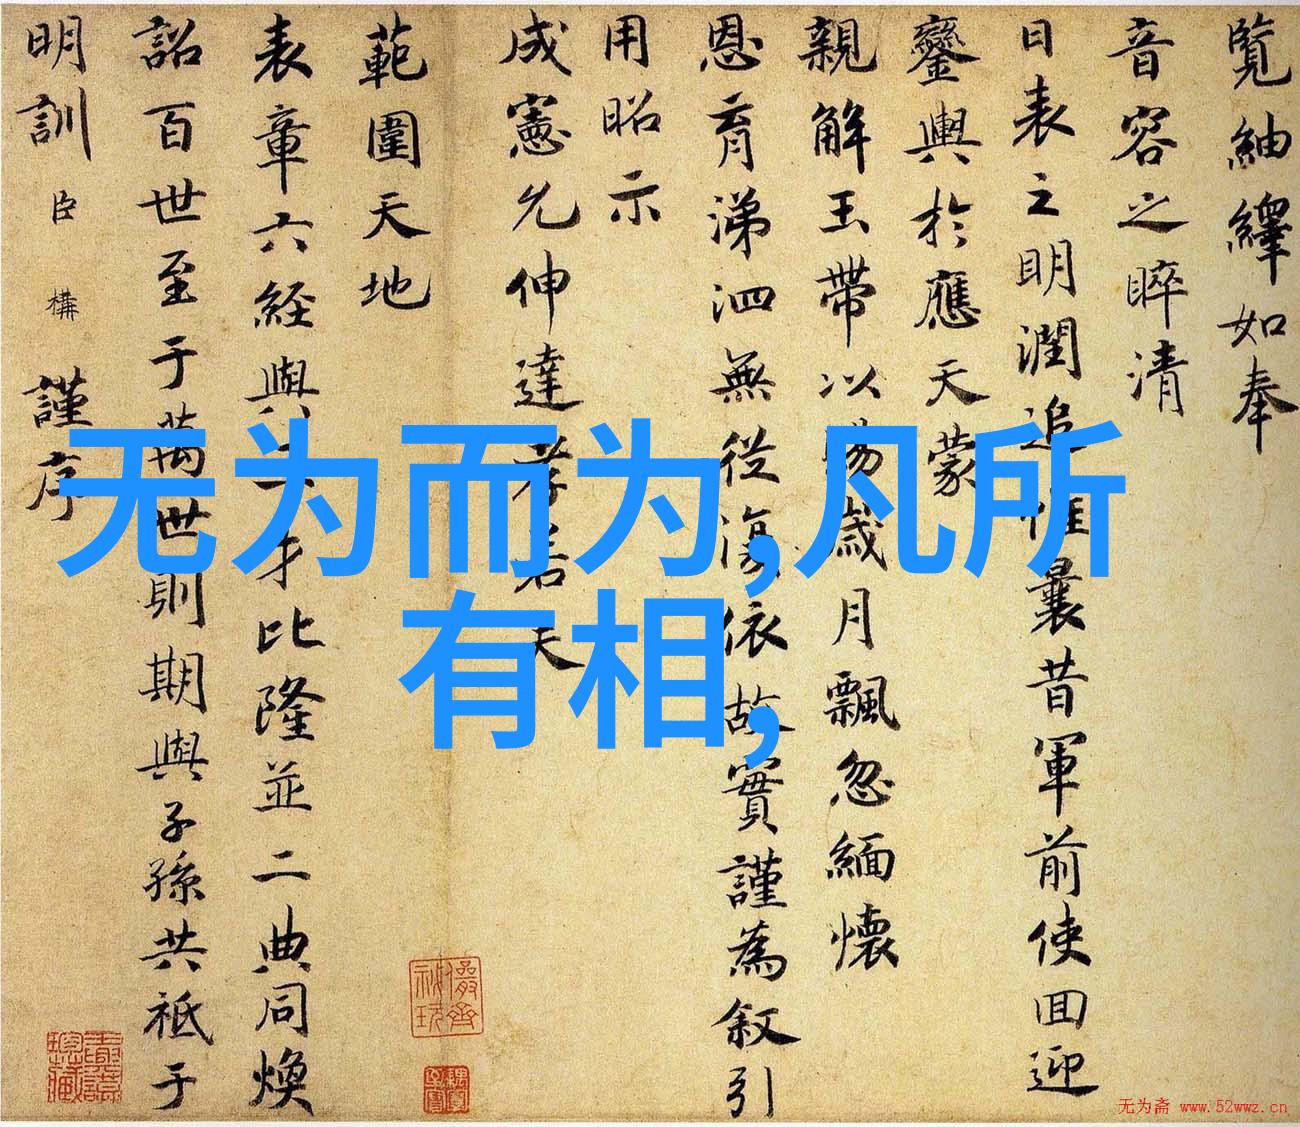 覽紬繹如奉
音容之睟清
日表之明潤追惟曩昔軍前使回迎
鑾輿於應天蒙
親解玉帶以賜歲月飄忽緬懷
恩育涕泗無從復依故實謹為叙引
用昭示
成憲允伸達孝若天
範圍天地
表章六經與三才比隆並二典同煥
詔百世至于萬世則期與子孫共祗于
明訓臣構謹序
无为而为,凡所
有相,
无为斋 www.52wwz.cn